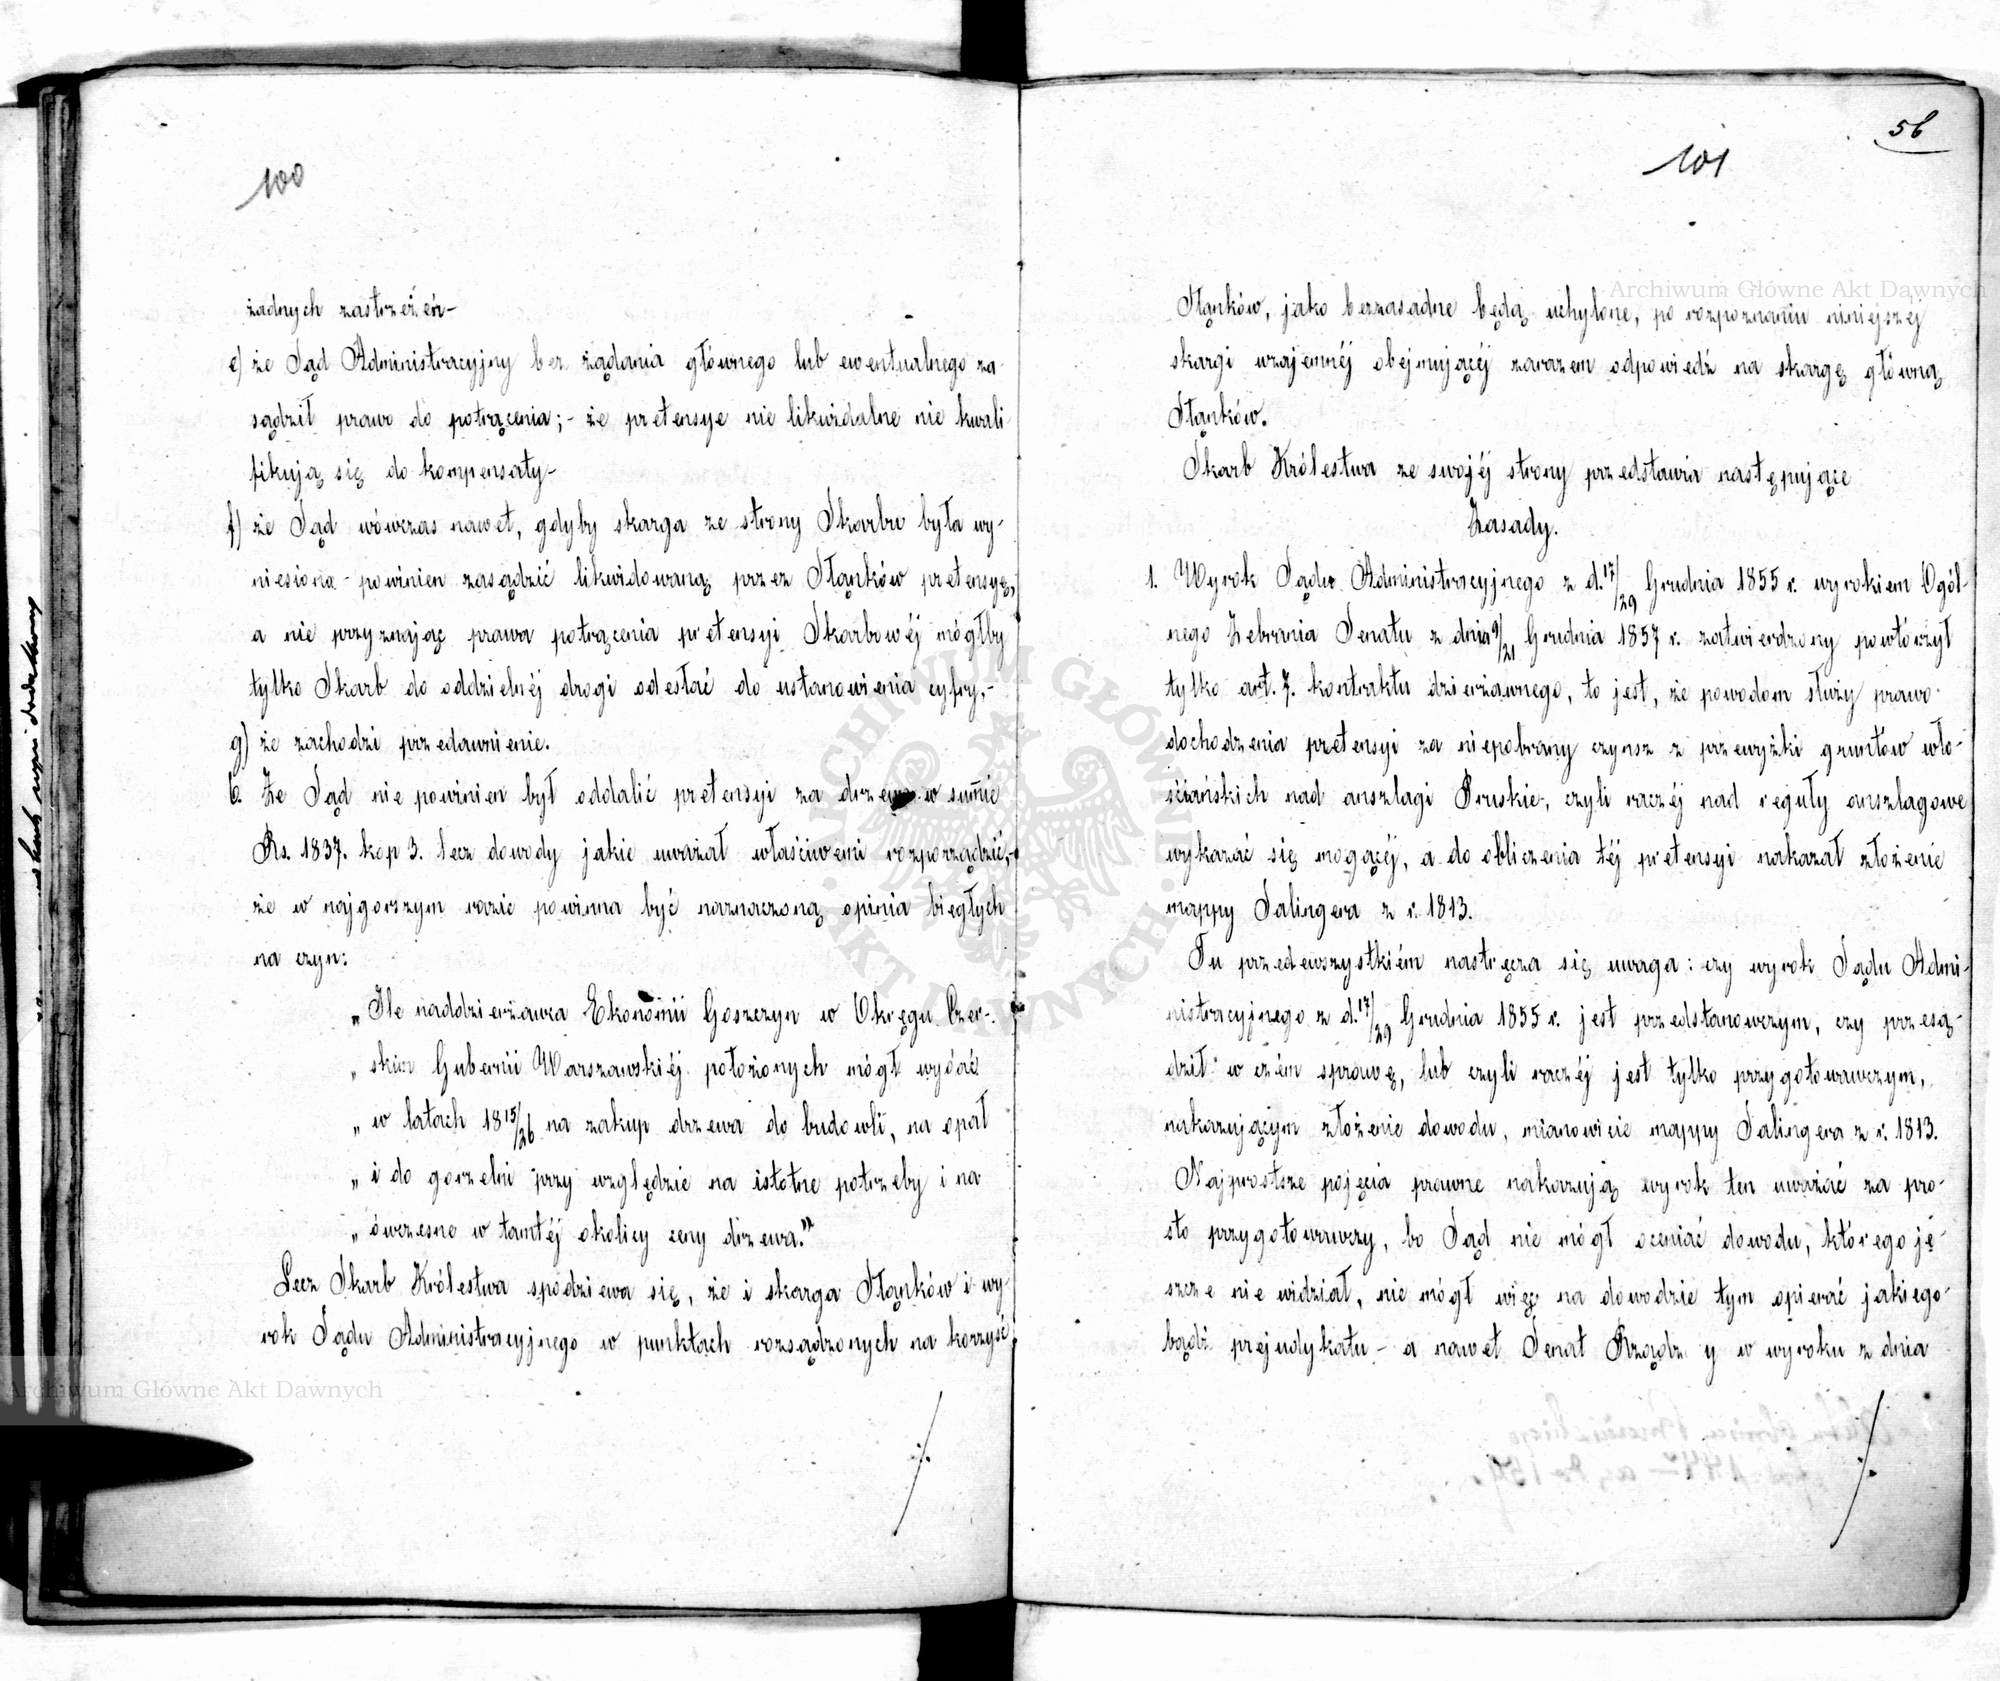 100
żadnych zastrzeżeń-
e) że Sąd Administracyjny bez żądania głównego lub ewentualnego za-
sądził prawo do potrącenia;- że pretensye nie likwidalne nie kwali
fikują się do kompensaty-
f) że Sąd wówczas nawet, gdyby skarga ze strony Skarbu była wy-
niesiona - powinien zasądzić likwidowaną przez Stąnków pretensyę,
a nie przyznając prawa potrącenia pretensyi Skarbowéj mógłby
tylko Skarb do oddzielnéj drogi odesłać do ustanowienia cyfry,-
g) że zachodzi przedawnienie.
6. Że Sąd nie powinien był oddalić pretensyi za drzewo w summie
Rs. 1837. kop 3. lecz dowody jakie uważał właściwemi rozporządzić,-
że w najgorszym razie powinna być naznaczoną opinia biegłych
na czyn:
„Ile naddzierżawca Ekonomii Goszczyn w Okręgu Czer-
„skim Gubernii Warszawskiéj położonych mógł wydać
„w latach 18 15/26 na zakup drzewa do budowli, na opał
„i do gorzelni przy względzie na istotne potrzeby i na
„ówczesne w tamtéj okolicy ceny drzewa."
Lecz Skarb Królestwa spodziewa się, że i skarga Stąnków i wy-
rok Sądu Administracyjnego w punktach rozsądzonych na korzyść
./.
56
101
Stąnków, jako bezzasadne będą uchylone, po rozpoznaniu niniejszéj
skargi wzajemnéj obejmującéj zarazem odpowiedź na skargę główną
Stąnków.
Skarb Królestwa ze swojéj strony przedstawia następujące
Zasady.
1. Wyrok Sądu Administracyjnego z d. 17/29 Grudnia 1855 r. wyrokiem Ogól-
nego Zebrania Senatu z dnia 9/21 Grudnia 1857 r. zatwierdzony powtórzył
tylko art. 7. kontraktu dzierżawnego, to jest, że powodom służy prawo
dochodzenia pretensyi za niepobrany czynsz z przewyżki gruntów wło-
ściańskich nad anszlagi Pruskie, czyli raczéj nad reguły anszlagowe
wykazać się mogącéj, a do obliczenia téj pretensyi nakazał złożenie
mappy Salingera z r. 1813.
Tu przedewszystkiém nastręcza się uwaga: czy wyrok Sądu Admi-
nistracyjnego z d. 17/29 Grudnia 1855 r. jest przedstanowczym, czy przesą-
dził w czém sprawę, lub czyli raczéj jest tylko przygotowawczym,
nakazującym złożenie dowodu, mianowicie mappy Salingera z r. 1813.
Najprostsze pojęcia prawne nakazują wyrok ten uważać za pro-
sto przygotowawczy, bo Sąd nie mógł oceniać dowodu, którego je-
szcze nie widział, nie mógł więc na dowodzie tym opierać jakiego-
bądź prejudykatu - a nawet Senat Rządzący w wyroku z dnia
./.
Archiwum Główne Akt Dawnych
Archiwum Główne Akt Dawnych
ARCHIWUM GŁÓWNE AKT DAWNYCH